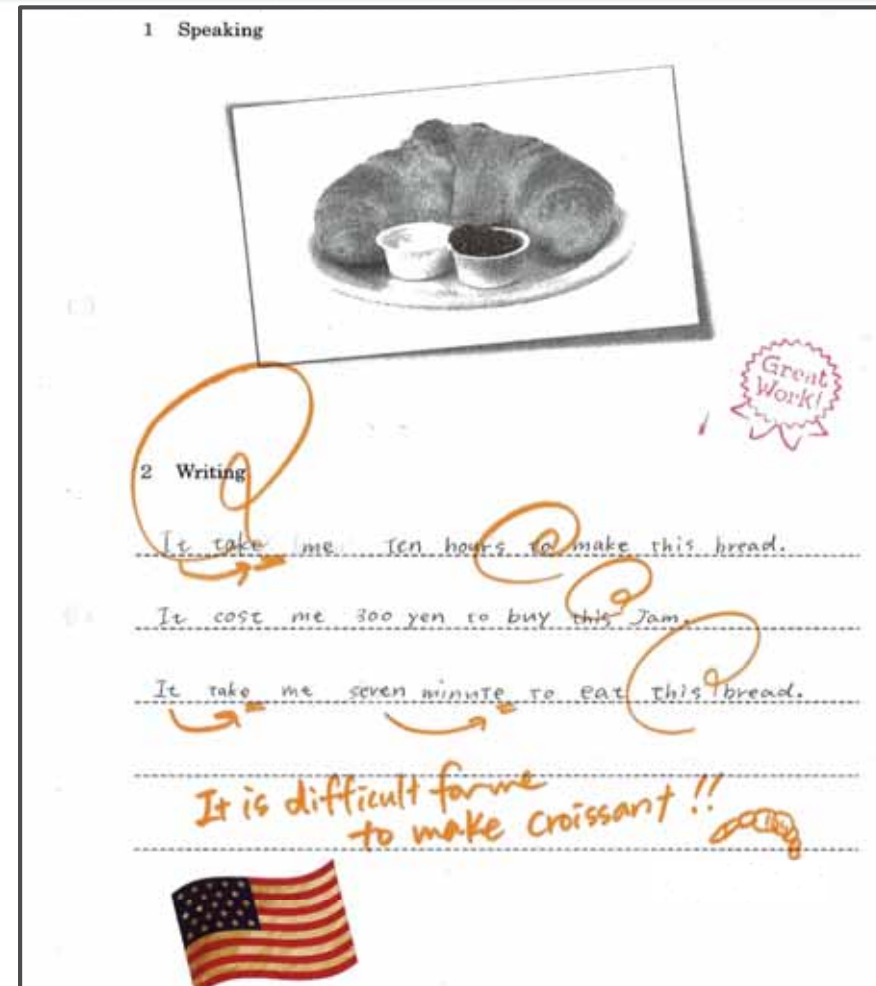 1 Speaking
Great
Work!
2 Writing
It take me ten hours to make this bread.
It cost me 300 yen to buy this Jam.
It take me seven minute to eat this bread.
It is difficult for me
to make croissant!!